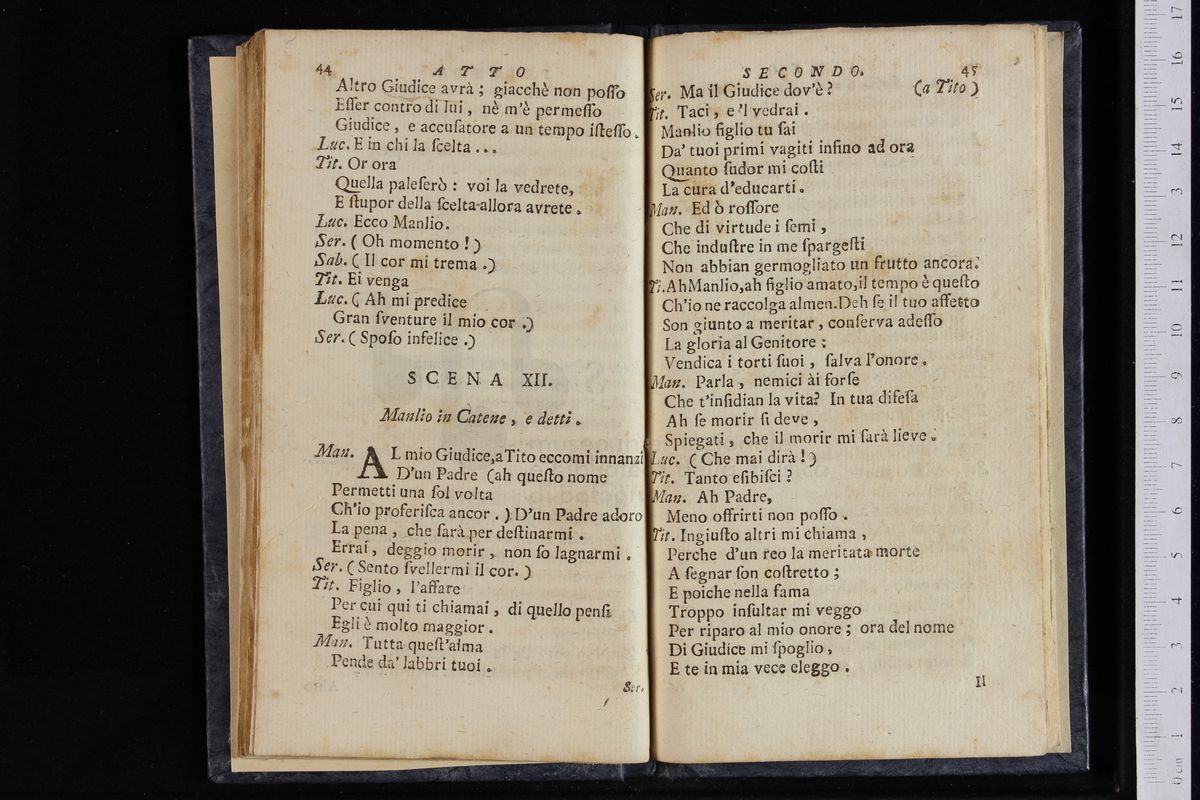 44 ATTO
Altro Giudice avrà ; giacchè non poſſo
Eſſer contro di lui , nè m'è permeſſo
Giudice , e accuſatore a un tempo iſteſſo.
Luc. E in chi la ſcelta ...
Tit. Or ora
Quella paleſerò : voi la vedrete,
E ſtupor della ſcelta allora avrete .
Luc. Ecco Manlio.
Ser. ( Oh momento ! )
Sab. ( Il cor mi trema .)
Tit. Ei venga
Luc. ( Ah mi predice
Gran ſventure il mio cor .)
Ser. ( Spoſo infelice .)
SCENA XII.
Manlio in Catene , e detti .
Man. AL mio Giudice,a Tito eccomi innanzi
D'un Padre (ah queſto nome
Permetti una ſol volta
Ch'io proferiſca ancor . ) D'un Padre adoro
La pena , che ſarà per deſtinarmi .
Errai , deggio morir , non ſo lagnarmi .
Ser. ( Sento ſvellermi il cor. )
Tit. Figlio , l'affare
Per cui qui ti chiamai , di quello penſi
Egli è molto maggior .
Man. Tutta queſt'alma
Pende da' labbri tuoi .
Ser.
SECONDO. 45
Ser. Ma il Giudice dov'è ? (a Tito )
Tit. Taci , e 'l vedrai .
Manlio figlio tu ſai
Da' tuoi primi vagiti inſino ad ora
Quanto ſudor mi coſti
La cura d'educarti .
Man. Ed ò roſſore
Che di virtude i ſemi ,
Che induſtre in me ſpargeſti
Non abbian germogliato un frutto ancora.
Ti. Ah Manlio,ah figlio amato,il tempo è queſto
Ch'io ne raccolga almen.Deh ſe il tuo affetto
Son giunto a meritar , conſerva adeſſo
La gloria al Genitore :
Vendica i torti ſuoi , ſalva l'onore .
Man. Parla , nemici ài forſe
Che t'inſidian la vita? In tua difeſa
Ah ſe morir ſi deve ,
Spiegati , che il morir mi ſarà lieve .
Luc. ( Che mai dirà ! )
Tit. Tanto eſibiſci ?
Man. Ah Padre,
Meno offrirti non poſſo .
Tit. Ingiuſto altri mi chiama ,
Perche d'un reo la meritata morte
A ſegnar ſon coſtretto ;
E poiche nella fama
Troppo inſultar mi veggo
Per riparo al mio onore ; ora del nome
Di Giudice mi ſpoglio ,
E te in mia vece eleggo .
Il